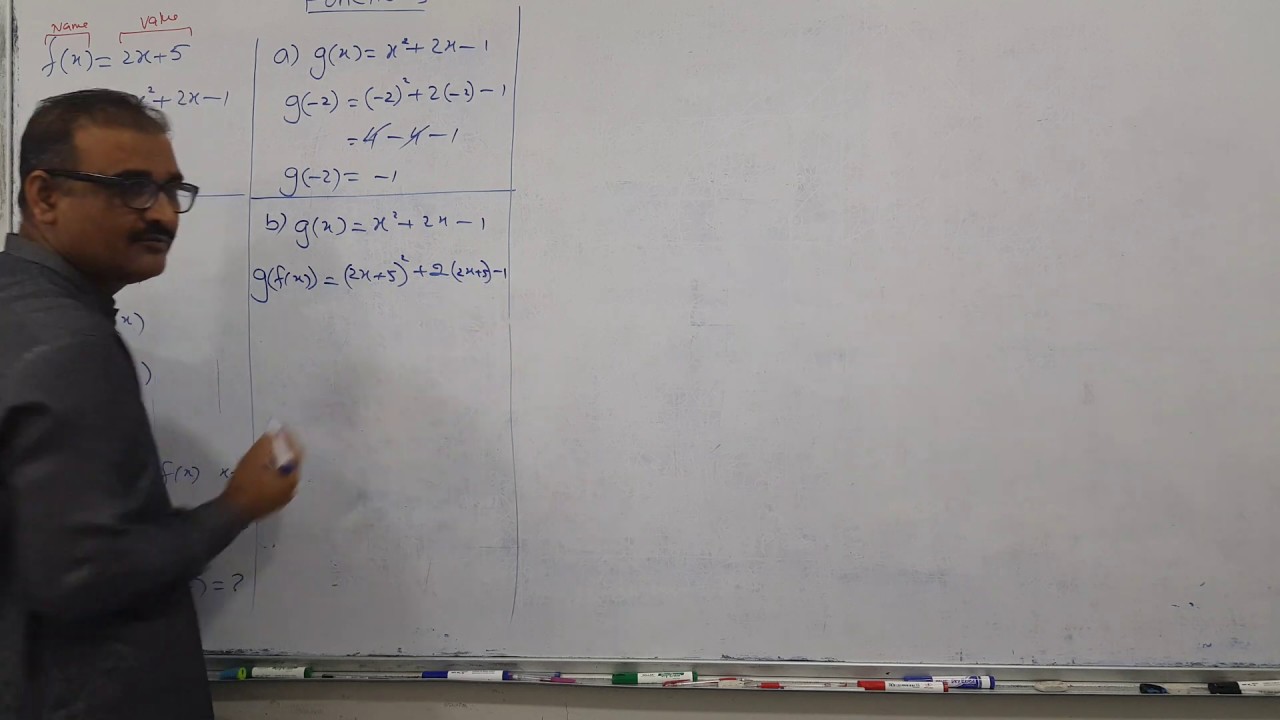 Functions
Name Value
f(x) = 2x+5
x² + 2x - 1
x)
)
f(x) x
) = ?
a) g(x) = x² + 2x - 1
g(-2) = (-2)² + 2(-2) - 1
= 4 - 4 - 1
g(-2) = -1
b) g(x) = x² + 2x - 1
g(f(x)) = (2x+5)² + 2(2x+5) - 1